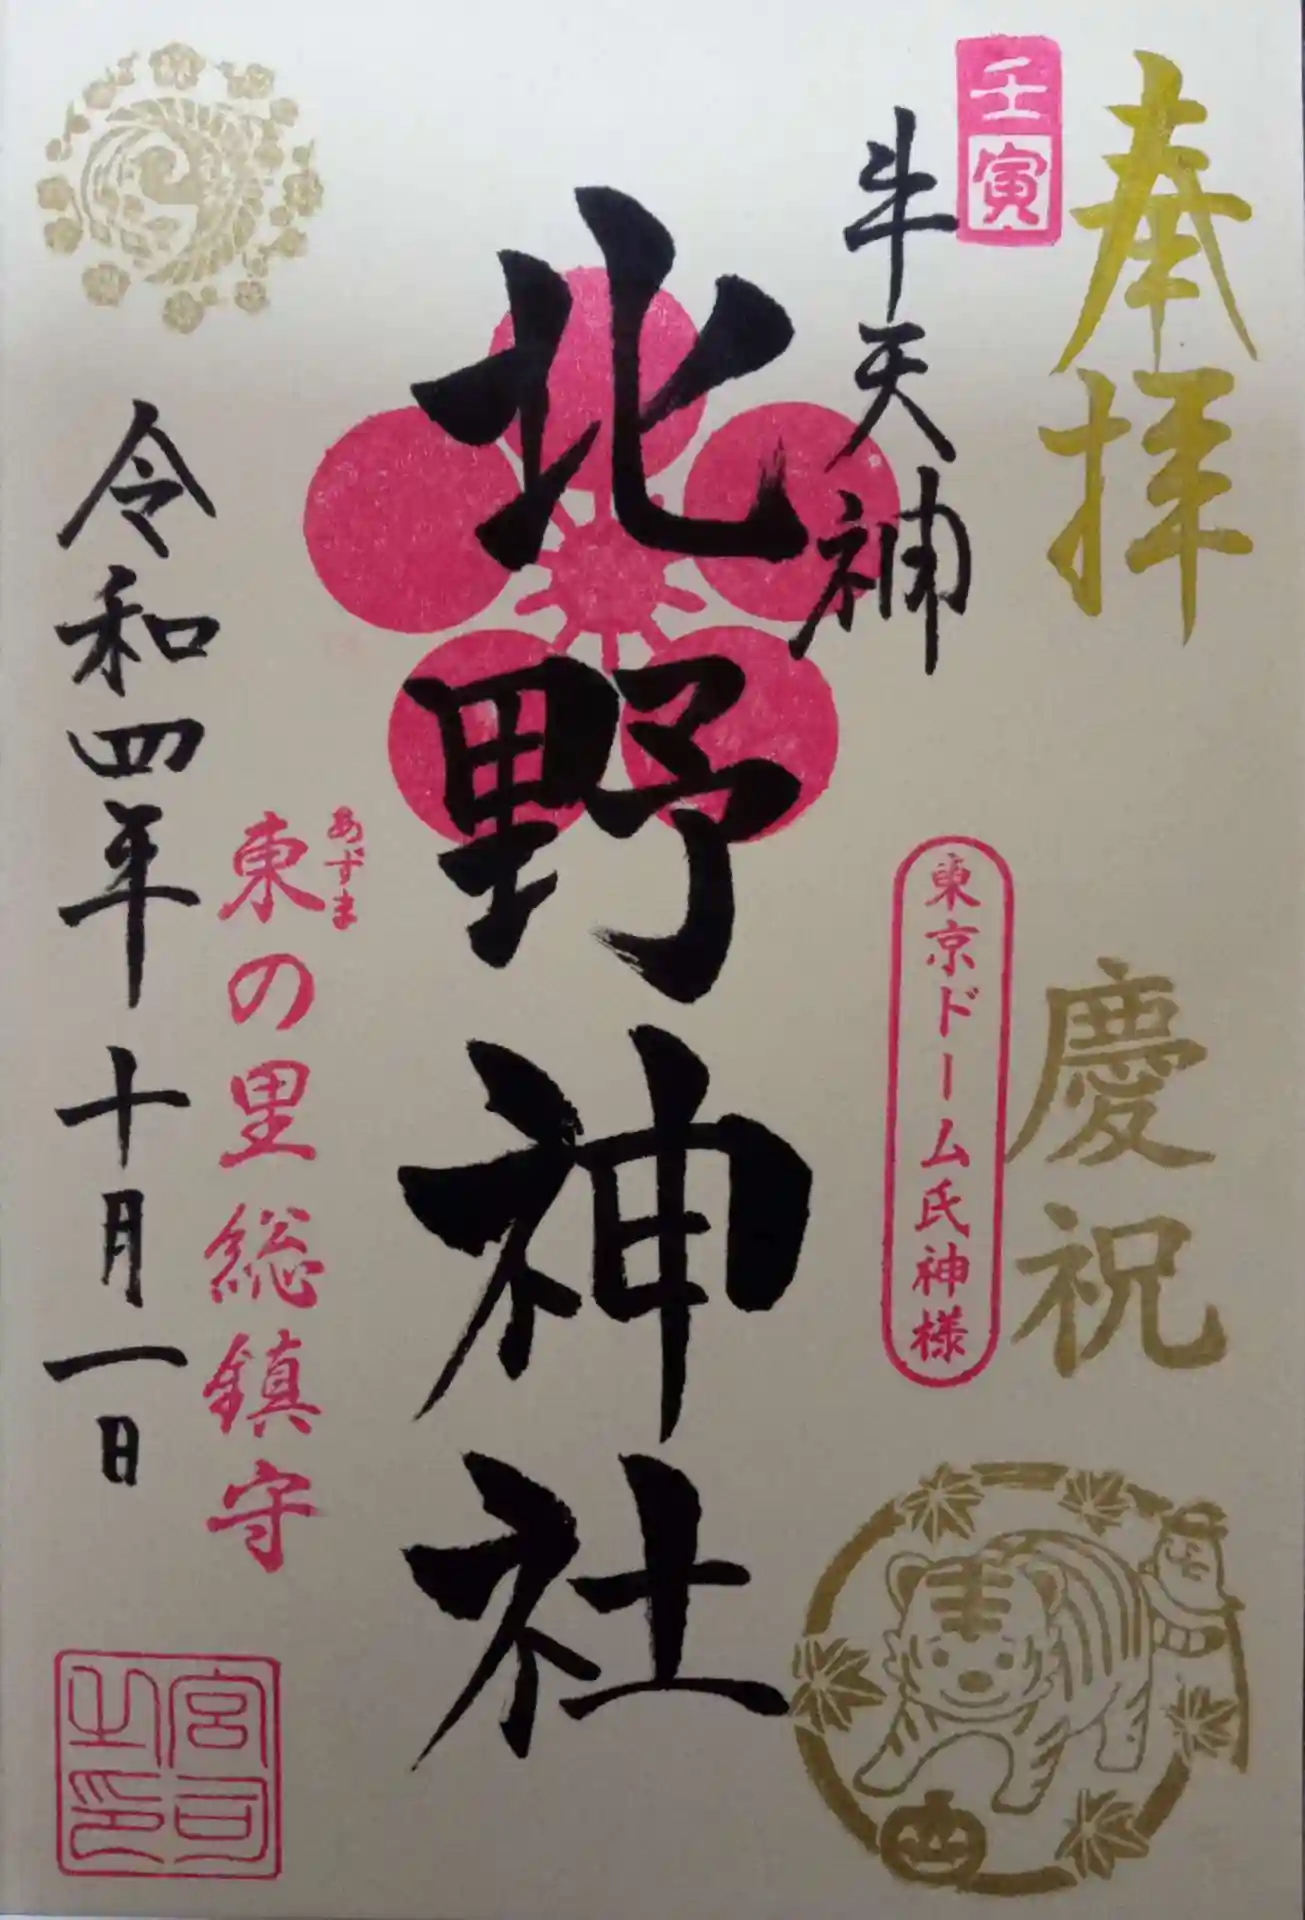 奉拝
慶祝
壬寅
牛天神
東京ドーム氏神様
北野神社
あずま
東の里総鎮守
令和四年十月一日
宮司之印